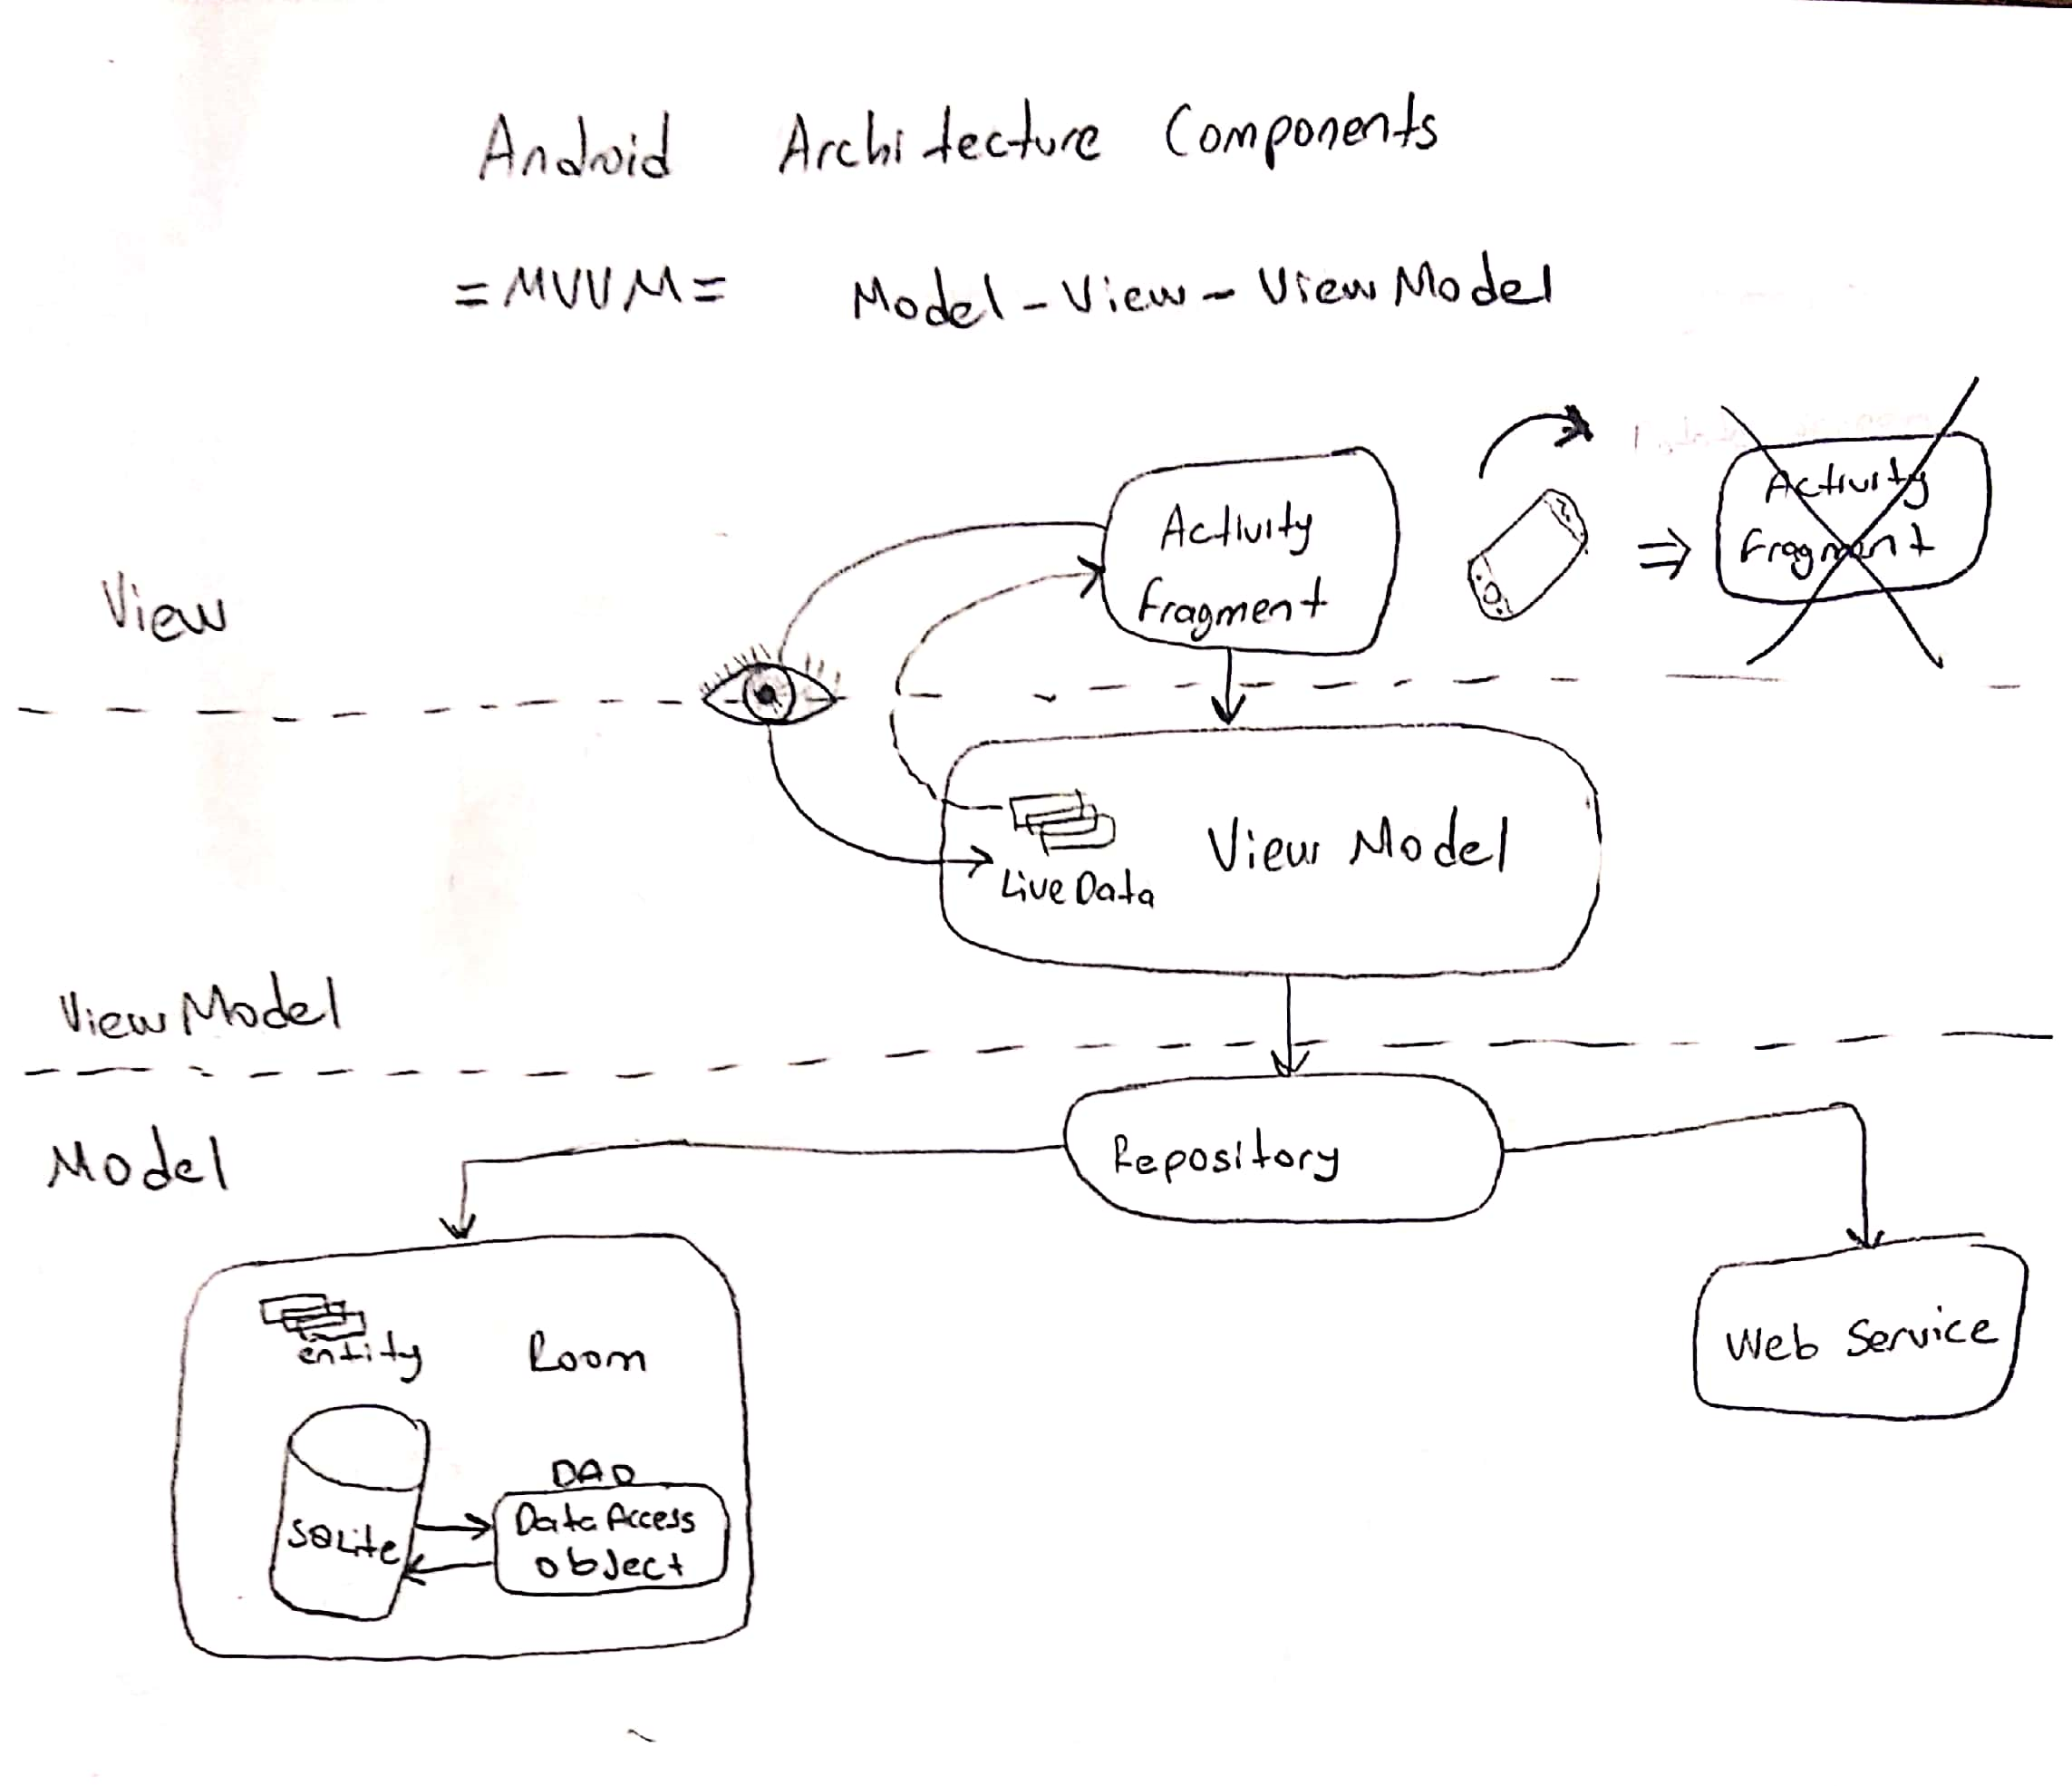 Android Architecture Components
=MVVM= Model-View-ViewModel
View
Activity
Fragment
Activity
Fragment
View Model
LiveData
ViewModel
Model
Repository
entity
Room
Web Service
SQLite
DAO
Data Access
Object